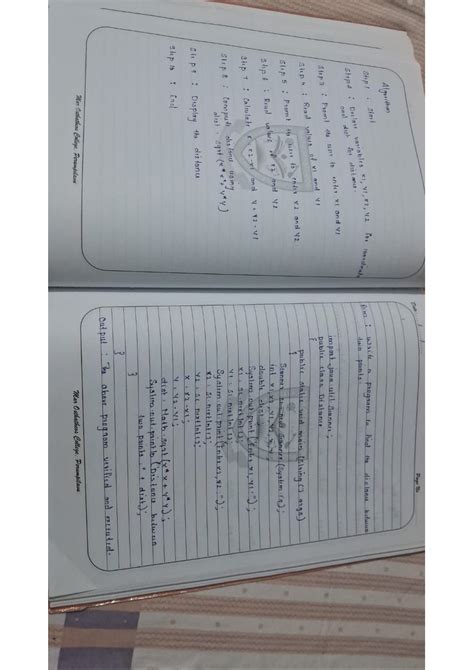 Algorithm
Step 1 : Start
Step 2 : Declare variables x1, y1, x2, y2 for coordinates
and dist for distance.
Step 3 : Promt the user to enter x1 and y1
Step 4 : Read values of x1 and y1
Step 5 : Promt the user to enter x2 and y2
Step 6 : Read values of x2 and y2
Step 7 : Calculate x = x2-x1 and y = y2-y1
Step 8 : Compute distance using
dist = sqrt(x*x+y*y)
Step 9 : Display the distance
Step 10 : End
Mar Osthathios College, Perumpilavu
Date
Page No
Aim : Write a program to find the distance between
two points.
import java.util.Scanner;
public class Distance
{
public static void main (String [] args)
{
Scanner sc = new Scanner (System.in);
int x1, x2, y1, y2, x, y;
double dist;
System.out.print ("Enter x1, y1 : ");
x1 = sc.nextInt();
y1 = sc.nextInt();
System.out.print ("Enter x2, y2 : ");
x2 = sc.nextInt();
y2 = sc.nextInt();
x = x2-x1;
y = y2-y1;
dist = Math.sqrt (x*x+y*y);
System.out.println ("Distance between
two points : " + dist);
}
}
Output : The above program verified and executed.
Mar Osthathios College, Perumpilavu